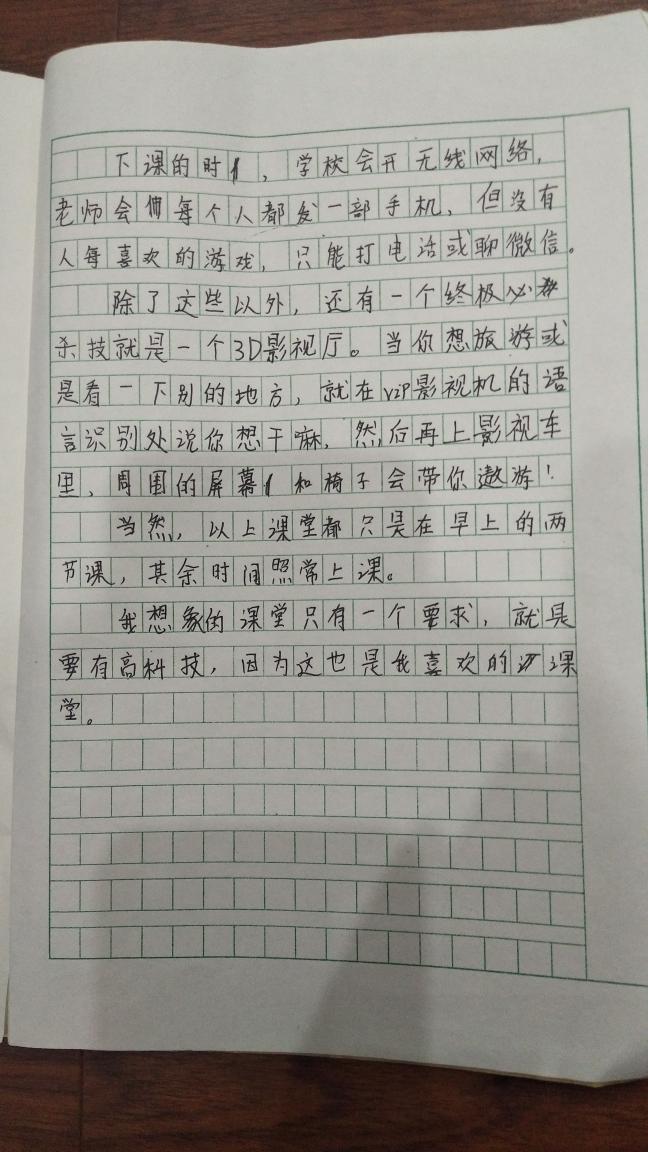 下课的时, 学校会开无线网络,
老师会每个人都发一部手机, 但没有
人每喜欢的游戏, 只能打电话或聊微信。
除了这些以外, 还有一个终极必
杀技就是一个3D影视厅。当你想旅游或
是看一下别的地方, 就在VIP影视机的语
言识别处说你想干嘛, 然后再上影视车
里, 周围的屏幕和椅子会带你遨游!
当然, 以上课堂都只是在早上的两
节课, 其余时间照常上课。
我想象的课堂只有一个要求, 就是
要有高科技, 因为这也是我喜欢的课
堂。